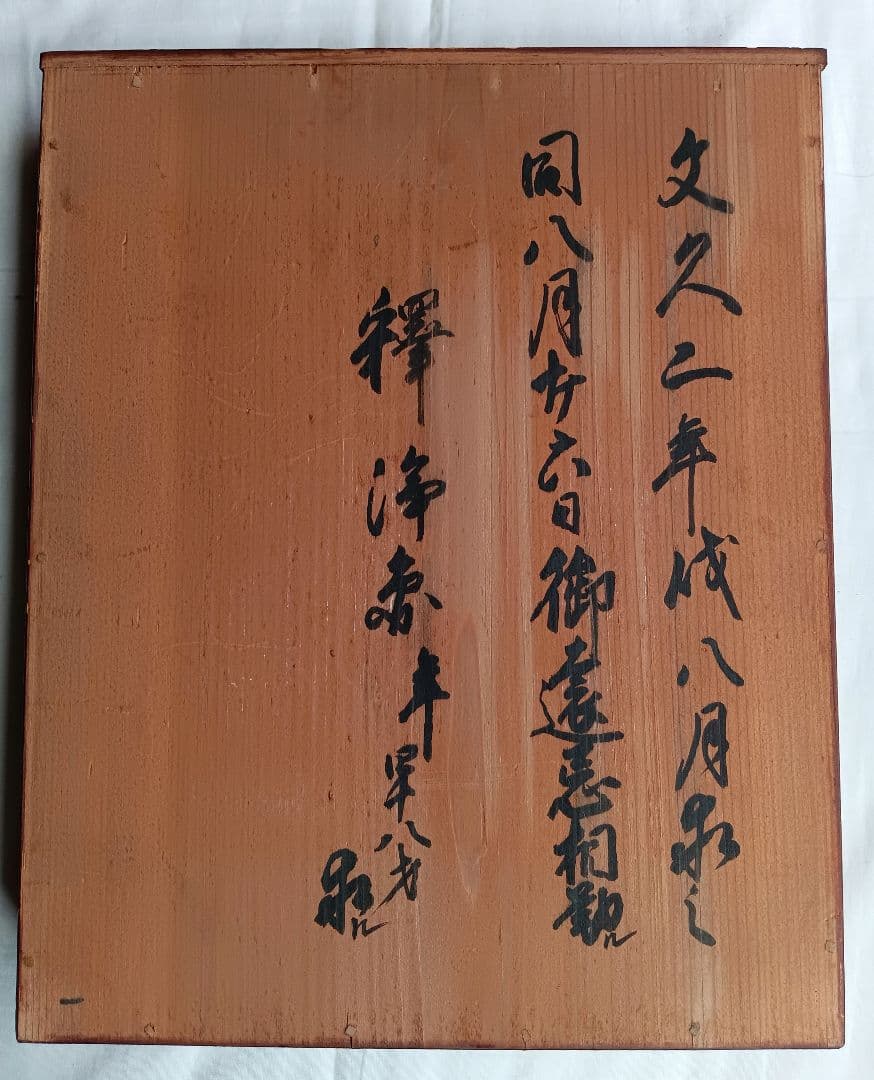 文久二年戌八月求之
同八月廿六日御遠忌相勤ル
釋浄 年四十八才
求ル